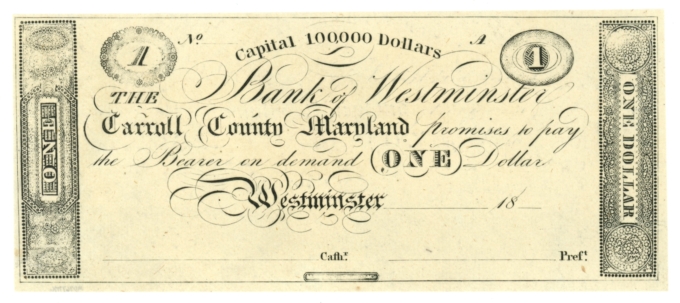 1 No Capital 100,000 Dollars A 1
THE Bank of Westminster
Carroll County Maryland promises to pay
the Bearer on demand ONE Dollar
Westminster 18
Cafhr. Preft.
ONE
ONE DOLLAR